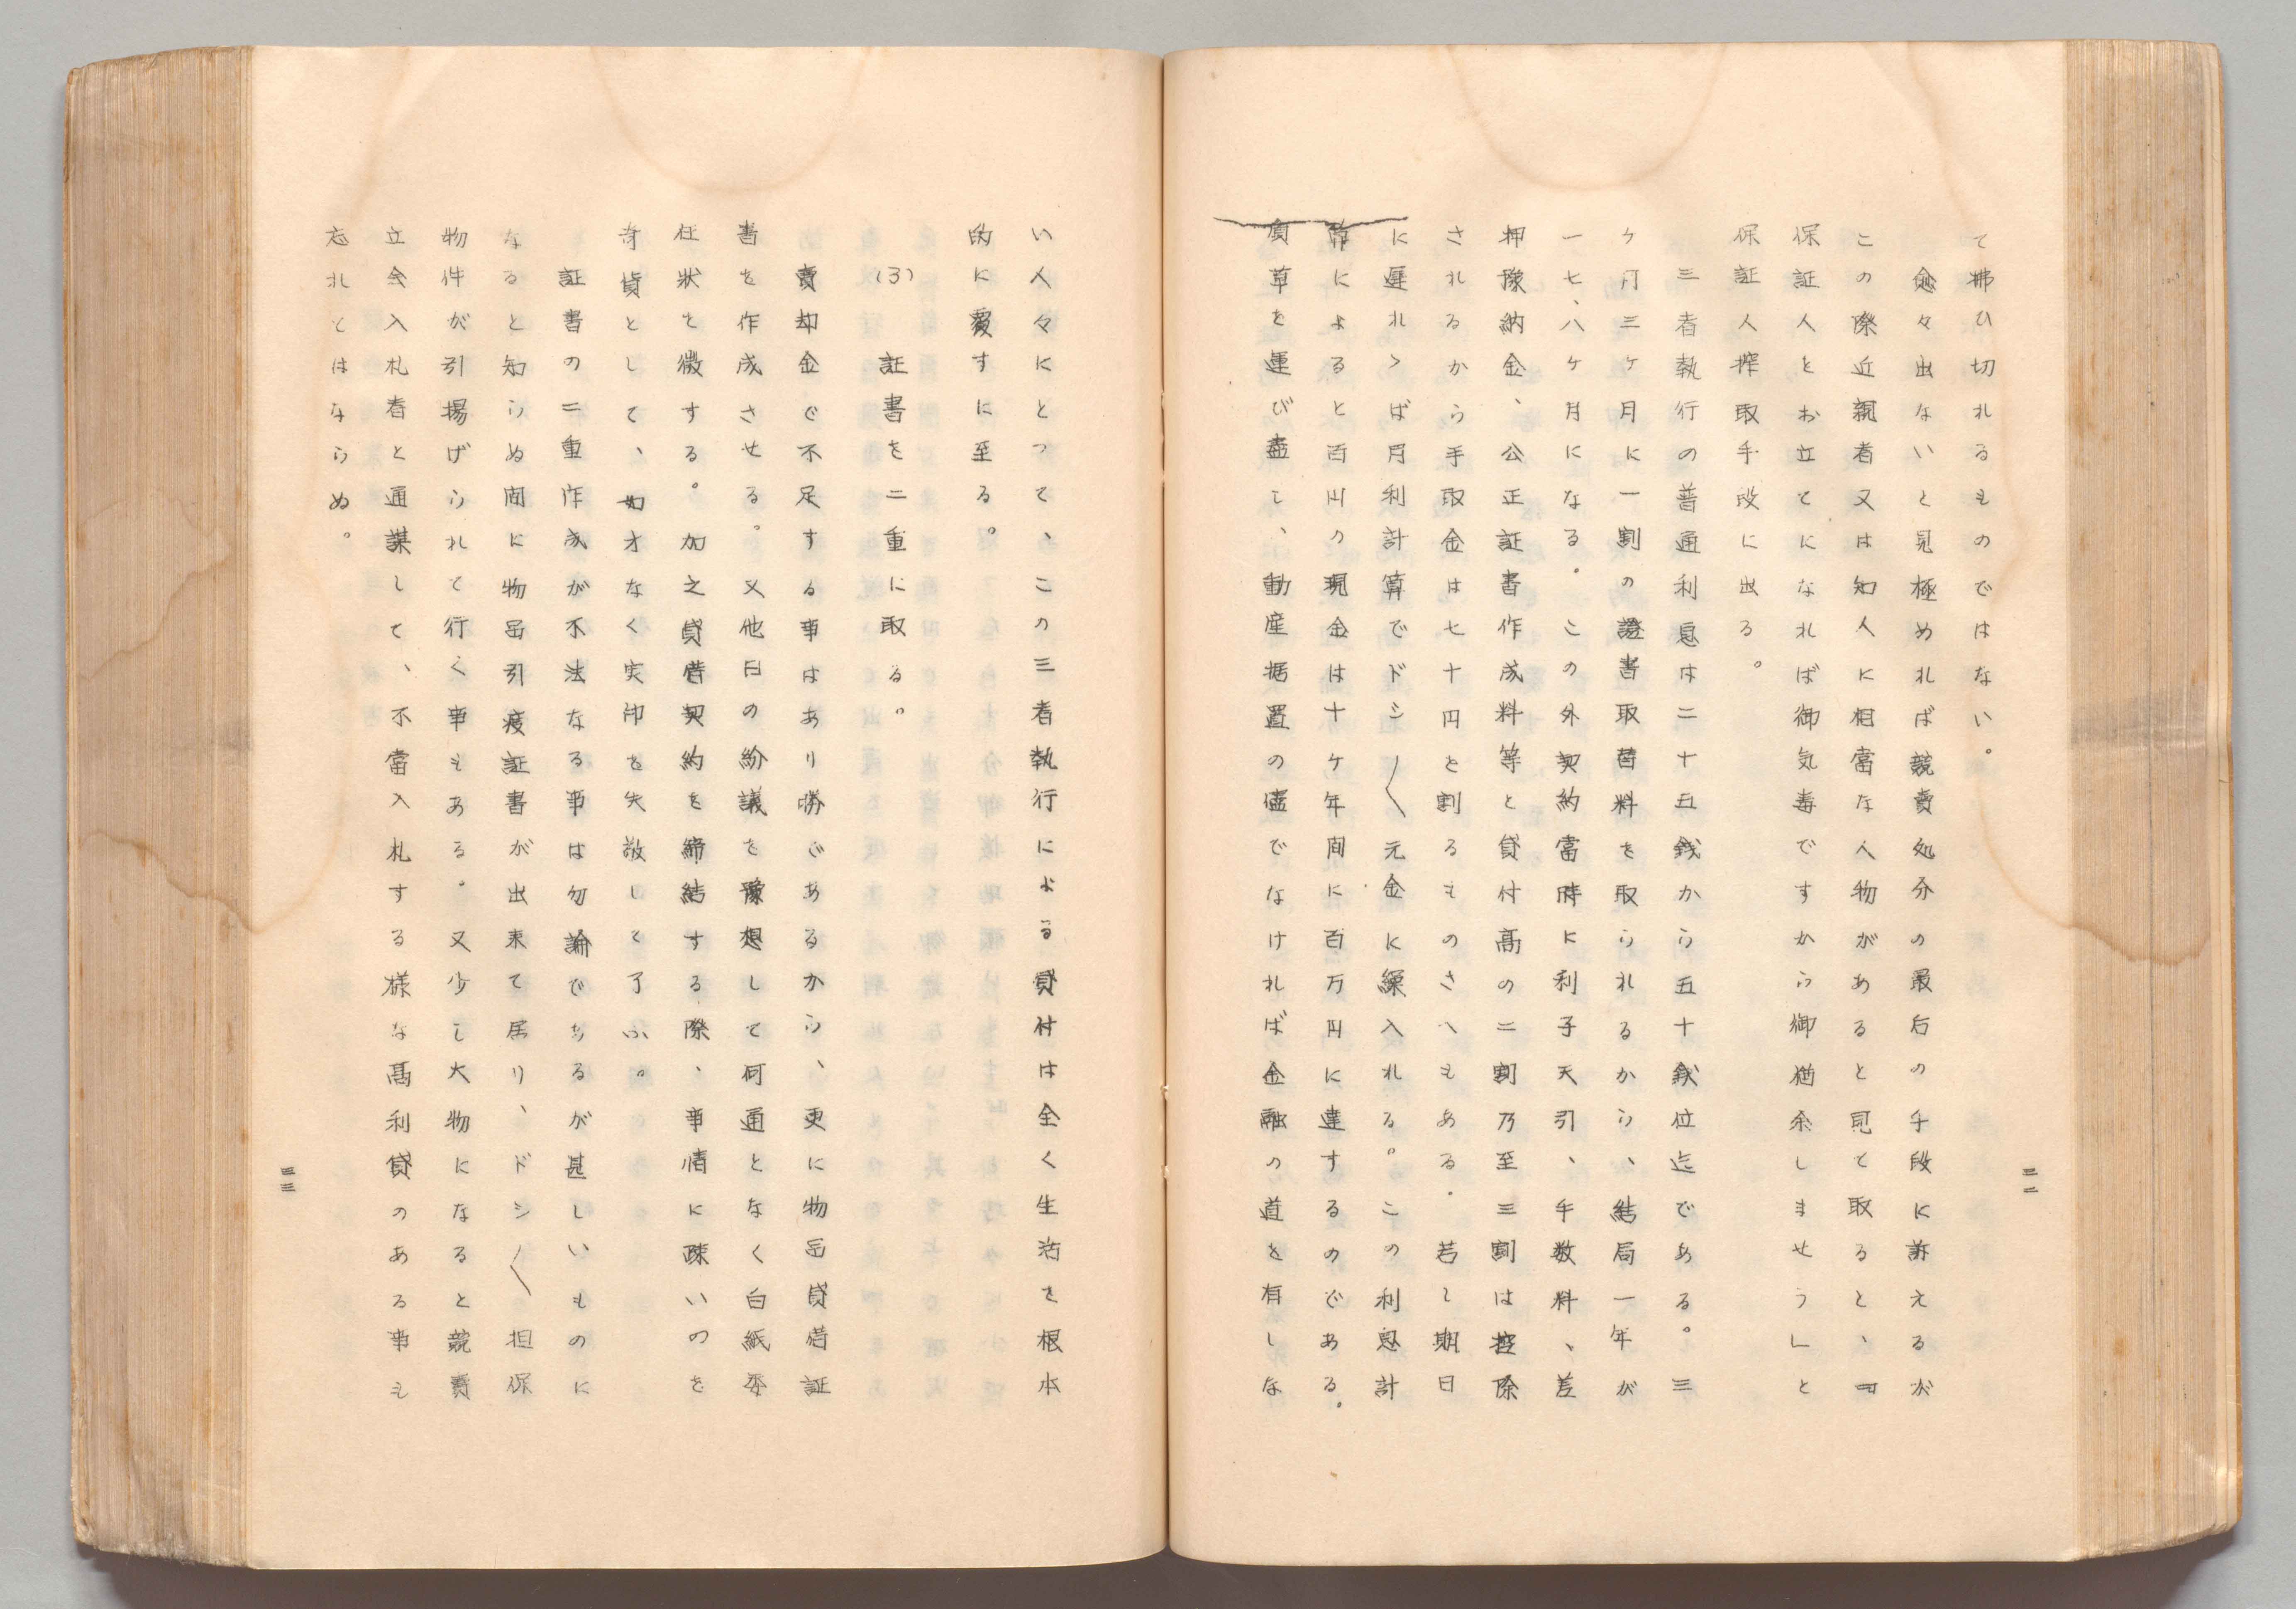 て拂ひ切れるものではない。
愈々出ないと見極めれば競賣処分の最后の手段に訴えるが
この際近親者又は知人に相當な人物があると見て取ると、「
保証人とお立てになれば御気毒ですから御猶余しませう」と
保証人搾取手段に出る。
三者執行の普通利息は二十五銭から五十銭位迄である。三
ヶ月三ヶ月に一割の證書取替料を取られるから、結局一年が
一七、八ヶ月になる。この外契約當時に利子天引、手数料、差
押豫納金、公正証書作成料等と貸付高の二割乃至三割は控除
されるから手取金は七十円と割るものさへもある。若し期日
に遅れゝば月利計算でドシ〳〵元金に繰入れる。この利息計
算によると百円の現金は十ヶ年間に百万円に達するのである。
質草を運び盡し、動産据置の儘でなければ金融の道を有しな
三二
い人々にとつて、この三者執行による貸付は全く生活を根本
的に覆すに至る。
(3) 証書を二重に取る。
賣却金で不足する事はあり勝であるから、更に物品貸借証
書を作成させる。又他日の紛議を豫想して何通となく白紙委
任状を徴する。加之貸借契約を締結する際、事情に疎いのを
奇貨として、如才なく実印を失敬して了ふ。
証書の二重作成が不法なる事は勿論であるが甚しいものに
なると知らぬ間に物品引渡証書が出来て居り、ドシ〳〵担保
物件が引揚げられて行く事もある。又少し大物になると競賣
立会入札者と通謀して、不當入札する様な高利貸のある事も
忘れとはならぬ。
三三